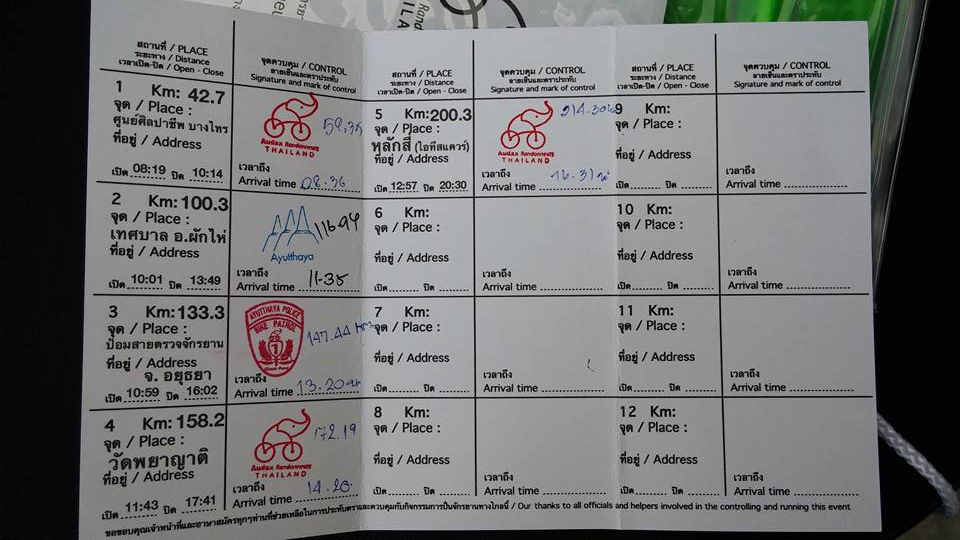 สถานที่ / PLACE
ระยะทาง / Distance
เวลาเปิด-ปิด / Open - Close
จุดควบคุม / CONTROL
ลายเซ็นและตราประทับ
Signature and mark of control
1 Km: 42.7
จุด / Place :
ศูนย์ศิลปาชีพ บางไทร
ที่อยู่ / Address
เปิด 08:19 ปิด 10:14
Audax Randonneurs
THAILAND
59.35
เวลาถึง
Arrival time 08.36
2 Km: 100.3
จุด / Place :
เทศบาล อ.ผักไห่
ที่อยู่ / Address
เปิด 10:01 ปิด 13:49
116.94
Ayutthaya
เวลาถึง
Arrival time 11.35
3 Km: 133.3
จุด / Place :
ป้อมสายตรวจจักรยาน
ที่อยู่ / Address
จ. อยุธยา
เปิด 10:59 ปิด 16:02
AYUTTHAYA POLICE
BIKE PATROL
147.44 km
เวลาถึง
Arrival time 13.20
4 Km: 158.2
จุด / Place :
วัดพยาญาติ
ที่อยู่ / Address
เปิด 11:43 ปิด 17:41
Audax Randonneurs
THAILAND
172.19
เวลาถึง
Arrival time 14.20
สถานที่ / PLACE
ระยะทาง / Distance
เวลาเปิด-ปิด / Open - Close
จุดควบคุม / CONTROL
ลายเซ็นและตราประทับ
Signature and mark of control
5 Km: 200.3
จุด / Place :
หลักสี่ (ไอทีสแควร์)
ที่อยู่ / Address
เปิด 12:57 ปิด 20:30
Audax Randonneurs
THAILAND
214.30
เวลาถึง
Arrival time 16.31
6 Km:
จุด / Place :
ที่อยู่ / Address
เปิด ปิด
เวลาถึง
Arrival time
7 Km:
จุด / Place :
ที่อยู่ / Address
เปิด ปิด
เวลาถึง
Arrival time
8 Km:
จุด / Place :
ที่อยู่ / Address
เปิด ปิด
เวลาถึง
Arrival time
สถานที่ / PLACE
ระยะทาง / Distance
เวลาเปิด-ปิด / Open - Close
จุดควบคุม / CONTROL
ลายเซ็นและตราประทับ
Signature and mark of control
9 Km:
จุด / Place :
ที่อยู่ / Address
เปิด ปิด
เวลาถึง
Arrival time
10 Km:
จุด / Place :
ที่อยู่ / Address
เปิด ปิด
เวลาถึง
Arrival time
11 Km:
จุด / Place :
ที่อยู่ / Address
เปิด ปิด
เวลาถึง
Arrival time
12 Km:
จุด / Place :
ที่อยู่ / Address
เปิด ปิด
เวลาถึง
Arrival time
ขอขอบคุณเจ้าหน้าที่และอาษาสมัครทุกๆท่านที่ช่วยเหลือในการประทับตราและควบคุมกำกับกิจกรรมการปั่นจักรยานทางไกลนี้ / Our thanks to all officials and helpers involved in the controlling and running this event